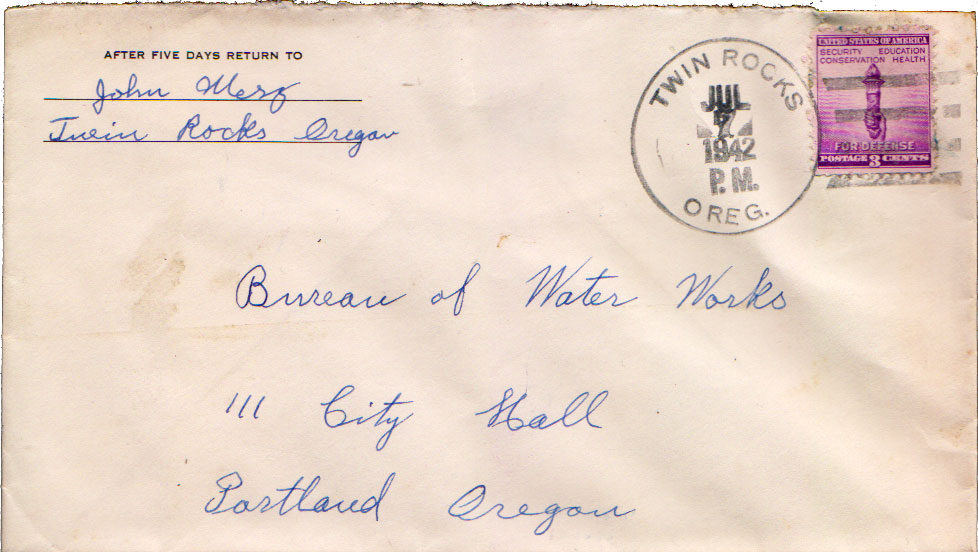 AFTER FIVE DAYS RETURN TO
John Merz
Twin Rocks Oregon
TWIN ROCKS
JUL
7
1942
P.M.
OREG.
UNITED STATES OF AMERICA
SECURITY EDUCATION
CONSERVATION HEALTH
FOR DEFENSE
POSTAGE 3 CENTS
Bureau of Water Works
111 City Hall
Portland Oregon